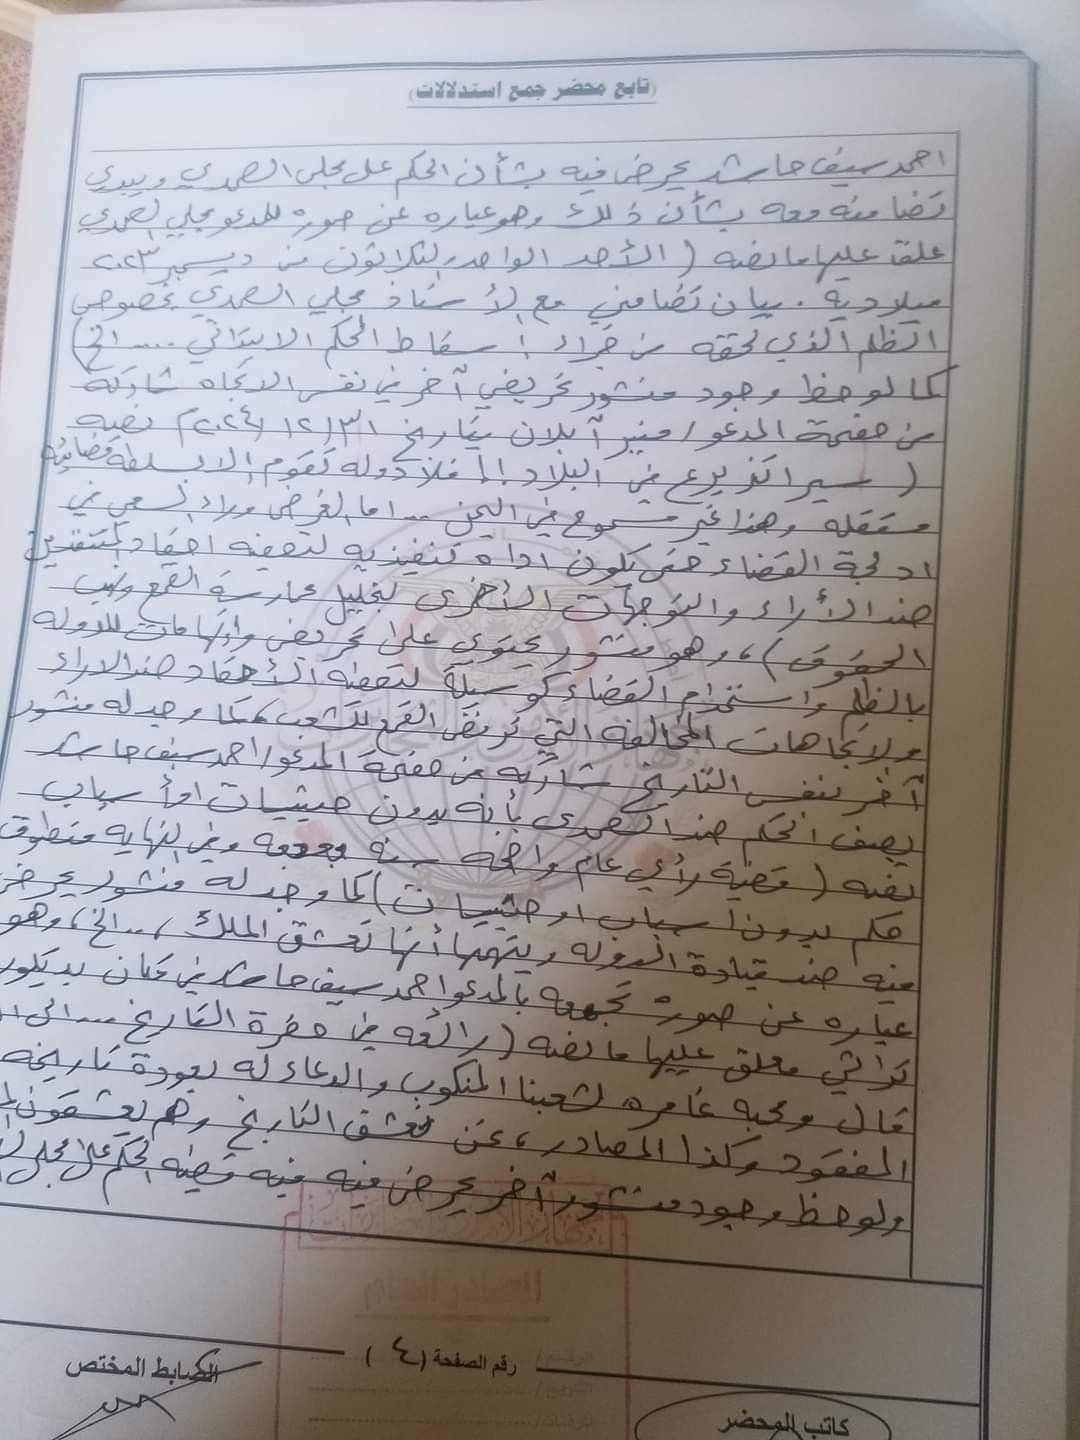 (تابع محضر جمع استدلالات)
احمد سيف حاشد يحرض فيه بشأن الحكم على مجلي الصمدي ويبدي
تضامنه معه بشأن ذلك وهو عباره عن صوره للمدعو مجلي الصمدي
علق عليها ما نصه ( الأحد الواحد والثلاثون من ديسمبر ٢٠٢٣
ميلادية . بيان تضامني مع الأستاذ مجلي الصمدي بخصوص
الظلم الذي لحقه من جراء إسقاط الحكم الابتدائي .... الخ)
كما لوحظ وجود منشور تحريضي آخر في نفس الاتجاه شاركه
من صفحة المدعو/ منير آبلان بتاريخ ٣١/١٢/٢٠٢٤م نصه
( سيراكز يرع في البلاد! فلا دوله تقوم الا بسلطة قضائية
مستقله وهذا غير مسموح في اليمن ... اما الغرض وراء السعي في
ادلجة القضاء حتى يكون اداه تنفيذيه لتصفيه احقاد المتنفذين
ضد الأراء والتوجهات الأخرى لتحليل ممارسة القمع ونهب
الحقوق)، وهو منشور يحتوي على تحريض واتهامات للدوله
بالظلم واستخدام القضاء كوسيلة لتصفية الأحقاد ضد الاراء
والاتجاهات المخالفه التي ترفض القمع للشعب، كما وجد له منشور
آخر بنفس التاريخ شاركه من صفحة المدعو/ احمد سيف حاشد
يصف الحكم ضد الصمدي بأنه بدون حيثيات او أسباب
نصه ( قضية رأي عام واضحه سنه وفي النهايه منطوق
حكم بدون أسباب او حيثيات) كما وجد له منشور يحرض
فيه ضد قيادة الدوله ويتهمها أنها تعشق الملك ،...الخ، وهو
عباره عن صوره تجمعه بالمدعو احمد سيف حاشد في مكان بديكور
تراثي معلق عليها ما نصه ( رائعه في حضرة التاريخ ...الى ان
قال ومحبه غامره لشعبنا المنكوب والدعاء له بعودة تاريخه
المفقود وكذا المصادر، نحن نعشق التاريخ وهم يعشقون
ولوحظ وجود منشور آخر يحرض فيه فيه قضيه الحكم على مجلي
رقم الصفحة ( ٤ )
الضابط المختص
كاتب المحضر